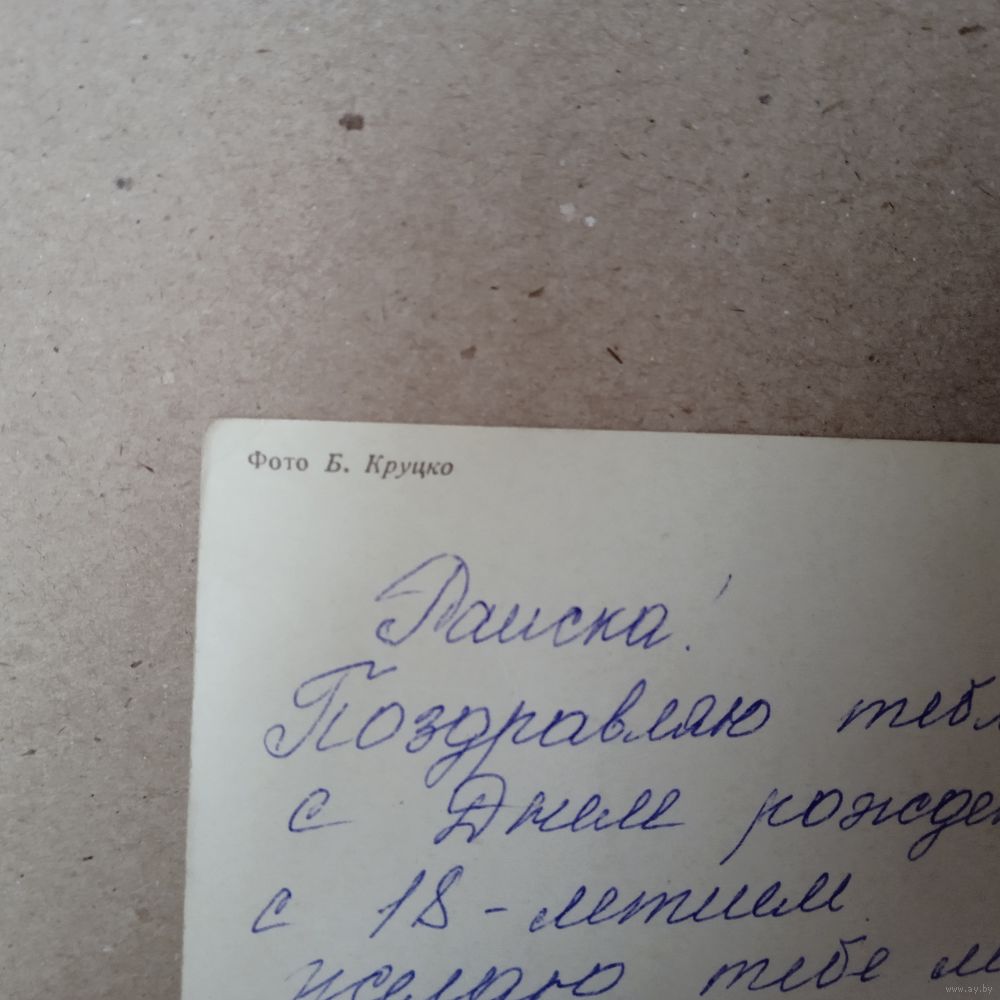 Фото Б. Круцко
Раиска!
Поздравляю тебя
с Днем рожден
с 18-летием
желаю тебе м
www.ay.by